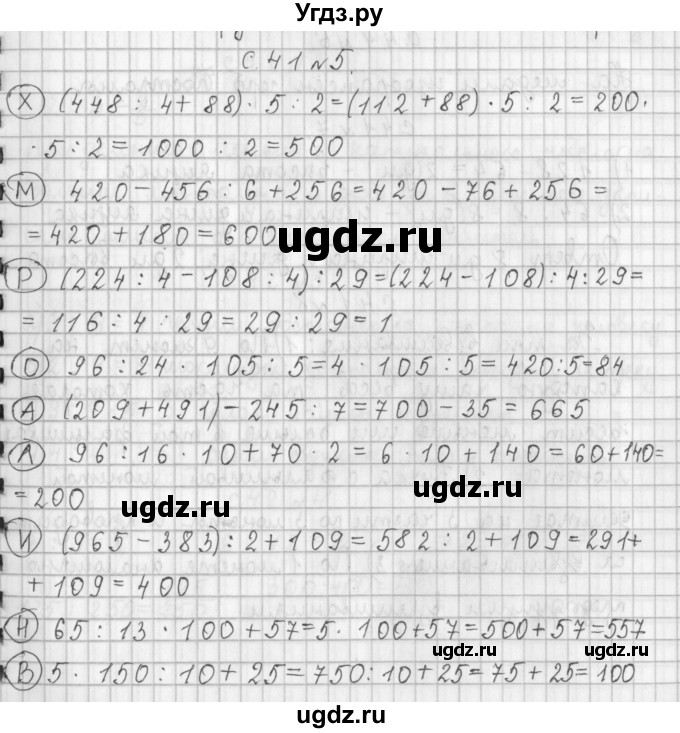 Угдз.ру
с. 41 №5.
Х (448 : 4 + 88) · 5 : 2 = (112 + 88) · 5 : 2 = 200 ·
· 5 : 2 = 1000 : 2 = 500
М 420 - 456 : 6 + 256 = 420 - 76 + 256 =
= 420 + 180 = 600
ugdz.ru
Р (224 : 4 - 108 : 4) : 29 = (224 - 108) : 4 : 29 =
= 116 : 4 : 29 = 29 : 29 = 1
О 96 : 24 · 105 : 5 = 4 · 105 : 5 = 420 : 5 = 84
А (209 + 491) - 245 : 7 = 700 - 35 = 665
Л 96 : 16 · 10 + 70 · 2 = 6 · 10 + 140 = 60 + 140 =
ugdz.ru
= 200
ugdz.ru
И (965 - 383) : 2 + 109 = 582 : 2 + 109 = 291 +
+ 109 = 400
Н 65 : 13 · 100 + 57 = 5 · 100 + 57 = 500 + 57 = 557
ugdz.ru
ugdz.ru
В 5 · 150 : 10 + 25 = 750 : 10 + 25 = 75 + 25 = 100
ugdz.ru